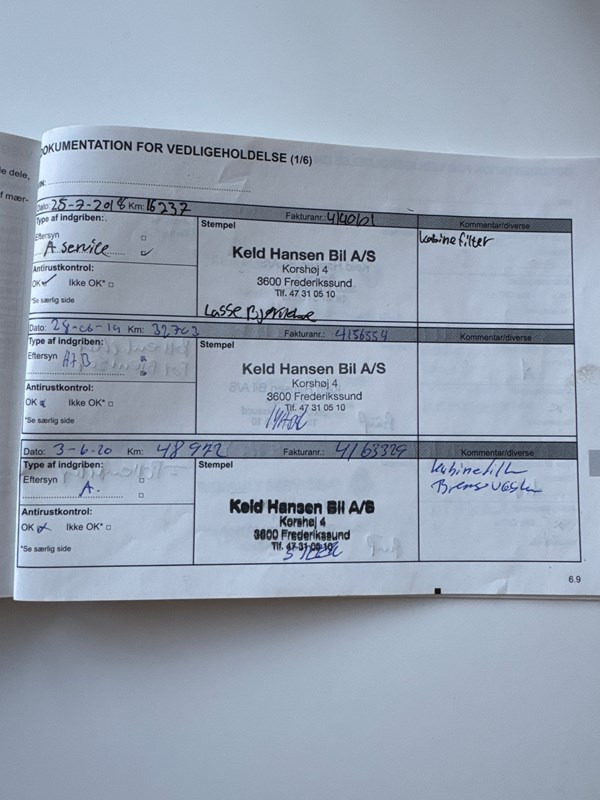 e dele,
f mær-
DOKUMENTATION FOR VEDLIGEHOLDELSE (1/6)
Dato: 25-7-2018 Km: 16237 Fakturanr.: Kommentar/diverse
Type af indgriben: Stempel kabinefilter
Eftersyn
A. service
Keld Hansen Bil A/S
Korshøj 4
3600 Frederikssund
Tlf. 47 31 05 10
Antirustkontrol:
OK Ikke OK*
*Se særlig side
Lasse
Dato: Km: 32703 Fakturanr.: 4156554 Kommentar/diverse
Type af indgriben: Stempel
Eftersyn
Keld Hansen Bil A/S
Korshøj 4
3600 Frederikssund
Tlf. 47 31 05 10
Antirustkontrol:
OK Ikke OK*
*Se særlig side
Dato: 3-6-20 Km: 48972 Fakturanr.: 4163329 Kommentar/diverse
Type af indgriben: Stempel kabinefilter
Eftersyn
A.
Keld Hansen Bil A/S
Korshøj 4
3600 Frederikssund
Tlf. 47 31 05 10
Antirustkontrol:
OK Ikke OK*
*Se særlig side
6.9